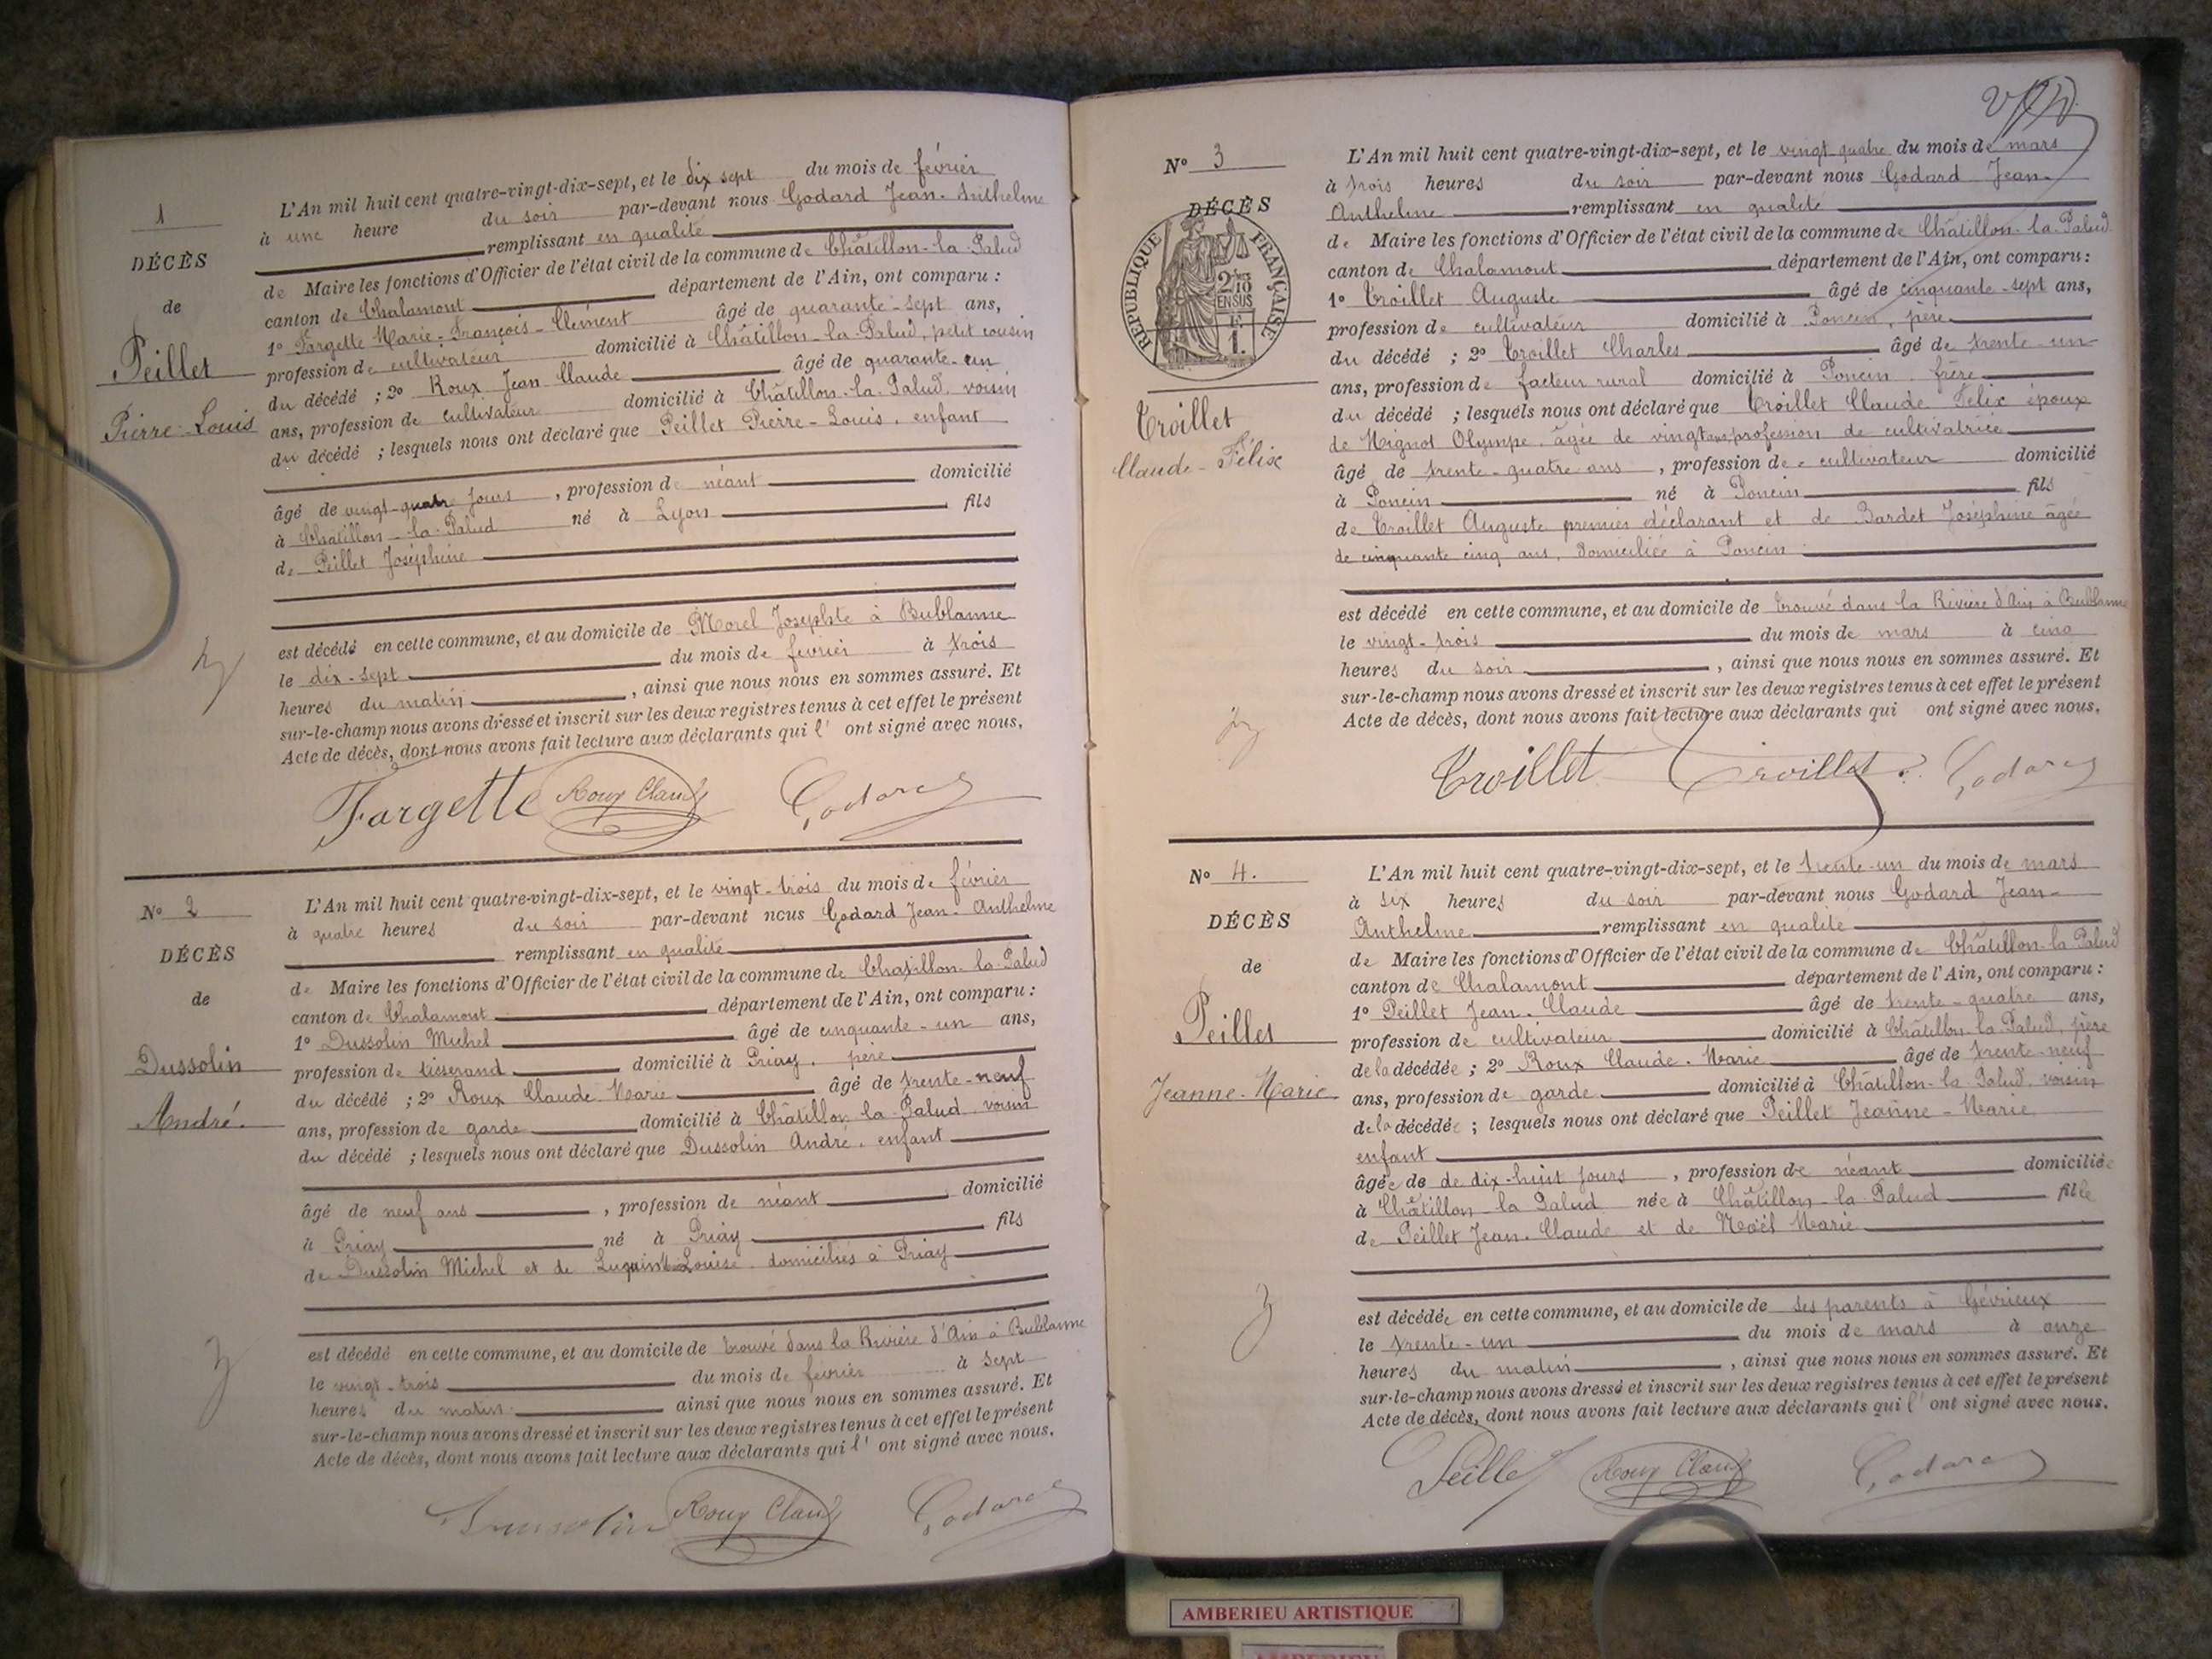 1
DÉCÈS
de
Peillet
Pierre-Louis
L'An mil huit cent quatre-vingt-dix-sept, et le dix sept du mois de février
à une heure du soir par-devant nous Godard Jean-Anthelme
remplissant en qualité
de Maire les fonctions d'Officier de l'état civil de la commune de Châtillon-la-Palud
canton de Chalamont département de l'Ain, ont comparu :
1º Fargette Marie-François-Clément âgé de quarante-sept ans,
profession de cultivateur domicilié à Châtillon-la-Palud, petit cousin
du décédé ; 2º Roux Jean-Claude âgé de quarante-un
ans, profession de cultivateur domicilié à Châtillon-la-Palud, voisin
du décédé ; lesquels nous ont déclaré que Peillet Pierre-Louis, enfant
âgé de vingt-quatre jours , profession de néant domicilié
à Châtillon-la-Palud né à Lyon fils
de Peillet Joséphine
est décédé en cette commune, et au domicile de Morel Josephte à Bublanne
le dix-sept du mois de février à trois
heures du matin , ainsi que nous nous en sommes assuré. Et
sur-le-champ nous avons dressé et inscrit sur les deux registres tenus à cet effet le présent
Acte de décès, dont nous avons fait lecture aux déclarants qui l' ont signé avec nous.
Fargette Roux Claude Godard
Nº 2
DÉCÈS
de
Dussolin
André.
L'An mil huit cent quatre-vingt-dix-sept, et le vingt-trois du mois de février
à quatre heures du soir par-devant nous Godard Jean-Anthelme
remplissant en qualité
de Maire les fonctions d'Officier de l'état civil de la commune de Chatillon-la-Palud
canton de Chalamont département de l'Ain, ont comparu :
1º Dussolin Michel âgé de cinquante-un ans,
profession de tisserand domicilié à Priay, père
du décédé ; 2º Roux Claude-Marie âgé de trente-neuf
ans, profession de garde domicilié à Châtillon-la-Palud voisin
du décédé ; lesquels nous ont déclaré que Dussolin André, enfant
âgé de neuf ans , profession de néant domicilié
à Priay né à Priay fils
de Dussolin Michel et de Louise domiciliés à Priay
est décédé en cette commune, et au domicile de trouvé dans la Rivière d'Ain à Bublanne
le vingt-trois du mois de février à sept
heures du matin ainsi que nous nous en sommes assuré. Et
sur-le-champ nous avons dressé et inscrit sur les deux registres tenus à cet effet le présent
Acte de décès, dont nous avons fait lecture aux déclarants qui l' ont signé avec nous.
Dussolin Roux Claude Godard
Nº 3
DÉCÈS
RÉPUBLIQUE FRANÇAISE
2/10
EN SUS
1.
Troillet
Claude-Félix
L'An mil huit cent quatre-vingt-dix-sept, et le vingt-quatre du mois de mars
à trois heures du soir par-devant nous Godard Jean-
Anthelme remplissant en qualité
de Maire les fonctions d'Officier de l'état civil de la commune de Châtillon-la-Palud
canton de Chalamont département de l'Ain, ont comparu :
1º Troillet Auguste âgé de cinquante-sept ans,
profession de cultivateur domicilié à Poncin, père
du décédé ; 2º Troillet Charles âgé de trente-un
ans, profession de facteur rural domicilié à Poncin frère
du décédé ; lesquels nous ont déclaré que Troillet Claude Félix époux
de Mignot Olympe, âgée de vingt ans, profession de cultivatrice
âgé de trente-quatre ans , profession de cultivateur domicilié
à Poncin né à Poncin fils
de Troillet Auguste premier déclarant et de Bardet Joséphine âgée
de cinquante cinq ans, domiciliée à Poncin
est décédé en cette commune, et au domicile de trouvé dans la Rivière d'Ain à Bublanne
le vingt-trois du mois de mars à cinq
heures du soir , ainsi que nous nous en sommes assuré. Et
sur-le-champ nous avons dressé et inscrit sur les deux registres tenus à cet effet le présent
Acte de décès, dont nous avons fait lecture aux déclarants qui ont signé avec nous.
Troillet Troillet Godard
Nº 4.
DÉCÈS
de
Peillet
Jeanne-Marie
L'An mil huit cent quatre-vingt-dix-sept, et le trente-un du mois de mars
à six heures du soir par-devant nous Godard Jean-
Anthelme remplissant en qualité
de Maire les fonctions d'Officier de l'état civil de la commune de Châtillon-la-Palud
canton de Chalamont département de l'Ain, ont comparu :
1º Peillet Jean-Claude âgé de trente-quatre ans,
profession de cultivateur domicilié à Châtillon-la-Palud, père
de la décédée ; 2º Roux Claude-Marie âgé de trente-neuf
ans, profession de garde domicilié à Châtillon-la-Palud, voisin
de la décédée ; lesquels nous ont déclaré que Peillet Jeanne-Marie
enfant
âgée de de dix-huit jours , profession de néant domiciliée
à Châtillon-la Palud née à Châtillon-la-Palud fille
de Peillet Jean-Claude et de Noël Marie
est décédée en cette commune, et au domicile de ses parents à Gévrieux
le trente-un du mois de mars à onze
heures du matin , ainsi que nous nous en sommes assuré. Et
sur-le-champ nous avons dressé et inscrit sur les deux registres tenus à cet effet le présent
Acte de décès, dont nous avons fait lecture aux déclarants qui l' ont signé avec nous.
Peillet Roux Claude Godard
AMBERIEU ARTISTIQUE
AMBERIEU